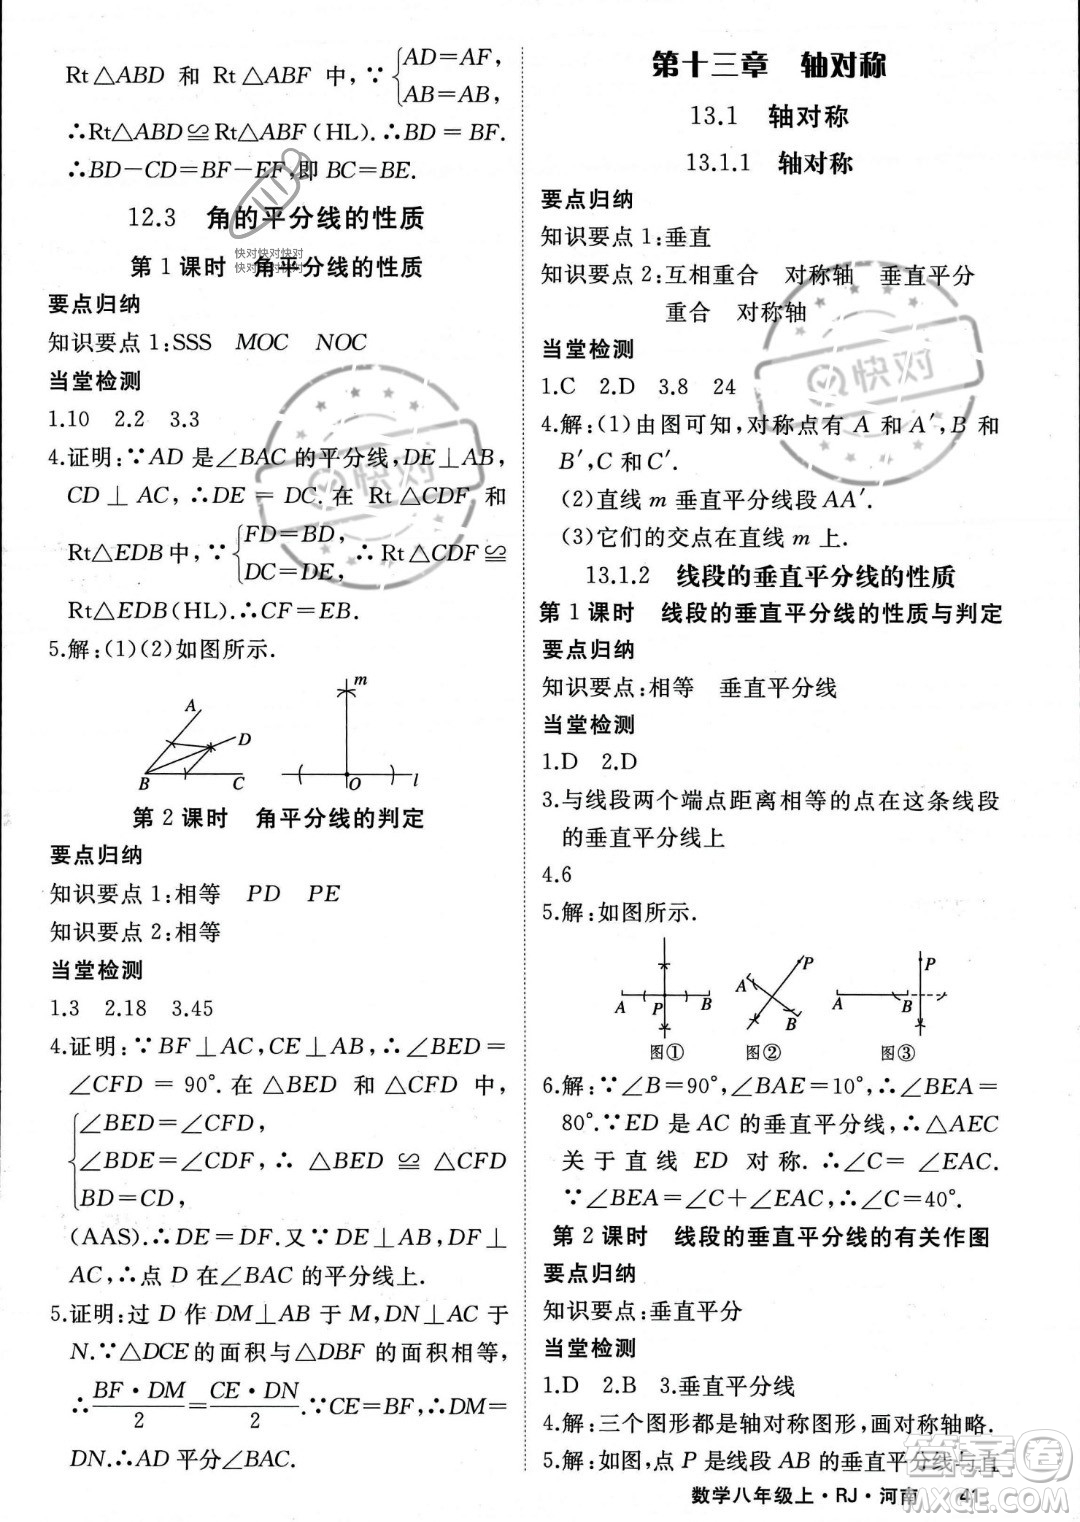 Rt△ABD 和 Rt△ABF 中,∵{AD=AF, AB=AB,
∴Rt△ABD≌Rt△ABF(HL).∴BD=BF.
∴BD-CD=BF-EF,即 BC=BE.
12.3 角的平分线的性质
第 1 课时 角平分线的性质
要点归纳
知识要点 1:SSS MOC NOC
当堂检测
1.10 2.2 3.3
4.证明:∵AD 是∠BAC 的平分线,DE⊥AB,
CD⊥AC,∴DE=DC.在 Rt△CDF 和
Rt△EDB 中,∵{FD=BD, DC=DE, ∴Rt△CDF≌
Rt△EDB(HL).∴CF=EB.
5.解:(1)(2)如图所示.
A D B C m O l
第 2 课时 角平分线的判定
要点归纳
知识要点 1:相等 PD PE
知识要点 2:相等
当堂检测
1.3 2.18 3.45
4.证明:∵BF⊥AC,CE⊥AB,∴∠BED=
∠CFD=90°.在△BED 和△CFD 中,
∠BED=∠CFD,
∠BDE=∠CDF,∴△BED≌△CFD
BD=CD,
(AAS).∴DE=DF.又∵DE⊥AB,DF⊥
AC,∴点 D 在∠BAC 的平分线上.
5.证明:过 D 作 DM⊥AB 于 M,DN⊥AC 于
N.∵△DCE 的面积与△DBF 的面积相等,
∴BF·DM/2=CE·DN/2.∵CE=BF,∴DM=
DN.∴AD 平分∠BAC.
第十三章 轴对称
13.1 轴对称
13.1.1 轴对称
要点归纳
知识要点 1:垂直
知识要点 2:互相重合 对称轴 垂直平分
重合 对称轴
当堂检测
1.C 2.D 3.8 24
4.解:(1)由图可知,对称点有 A 和 A′,B 和
B′,C 和 C′.
(2)直线 m 垂直平分线段 AA′.
(3)它们的交点在直线 m 上.
13.1.2 线段的垂直平分线的性质
第 1 课时 线段的垂直平分线的性质与判定
要点归纳
知识要点:相等 垂直平分线
当堂检测
1.D 2.D
3.与线段两个端点距离相等的点在这条线段
的垂直平分线上
4.6
5.解:如图所示.
A P B A P B A B P
图① 图② 图③
6.解:∵∠B=90°,∠BAE=10°,∴∠BEA=
80°.∵ED 是 AC 的垂直平分线,∴△AEC
关于直线 ED 对称.∴∠C=∠EAC.
∵∠BEA=∠C+∠EAC,∴∠C=40°.
第 2 课时 线段的垂直平分线的有关作图
要点归纳
知识要点:垂直平分
当堂检测
1.D 2.B 3.垂直平分线
4.解:三个图形都是轴对称图形,画对称轴略.
5.解:如图,点 P 是线段 AB 的垂直平分线与直
数学八年级上·RJ·河南 41
快对快对快对
快对快对快对
快对
快对
答案卷
MXQE.COM